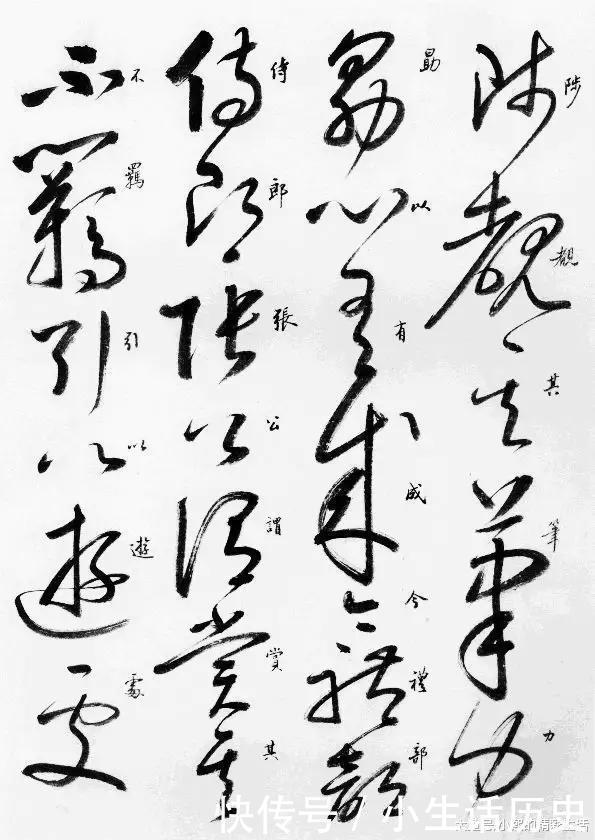 陟覩其筆力
勗以有成今禮部
侍郎張公謂賞其
不羈引以遊處
快传号 / 小生活历史